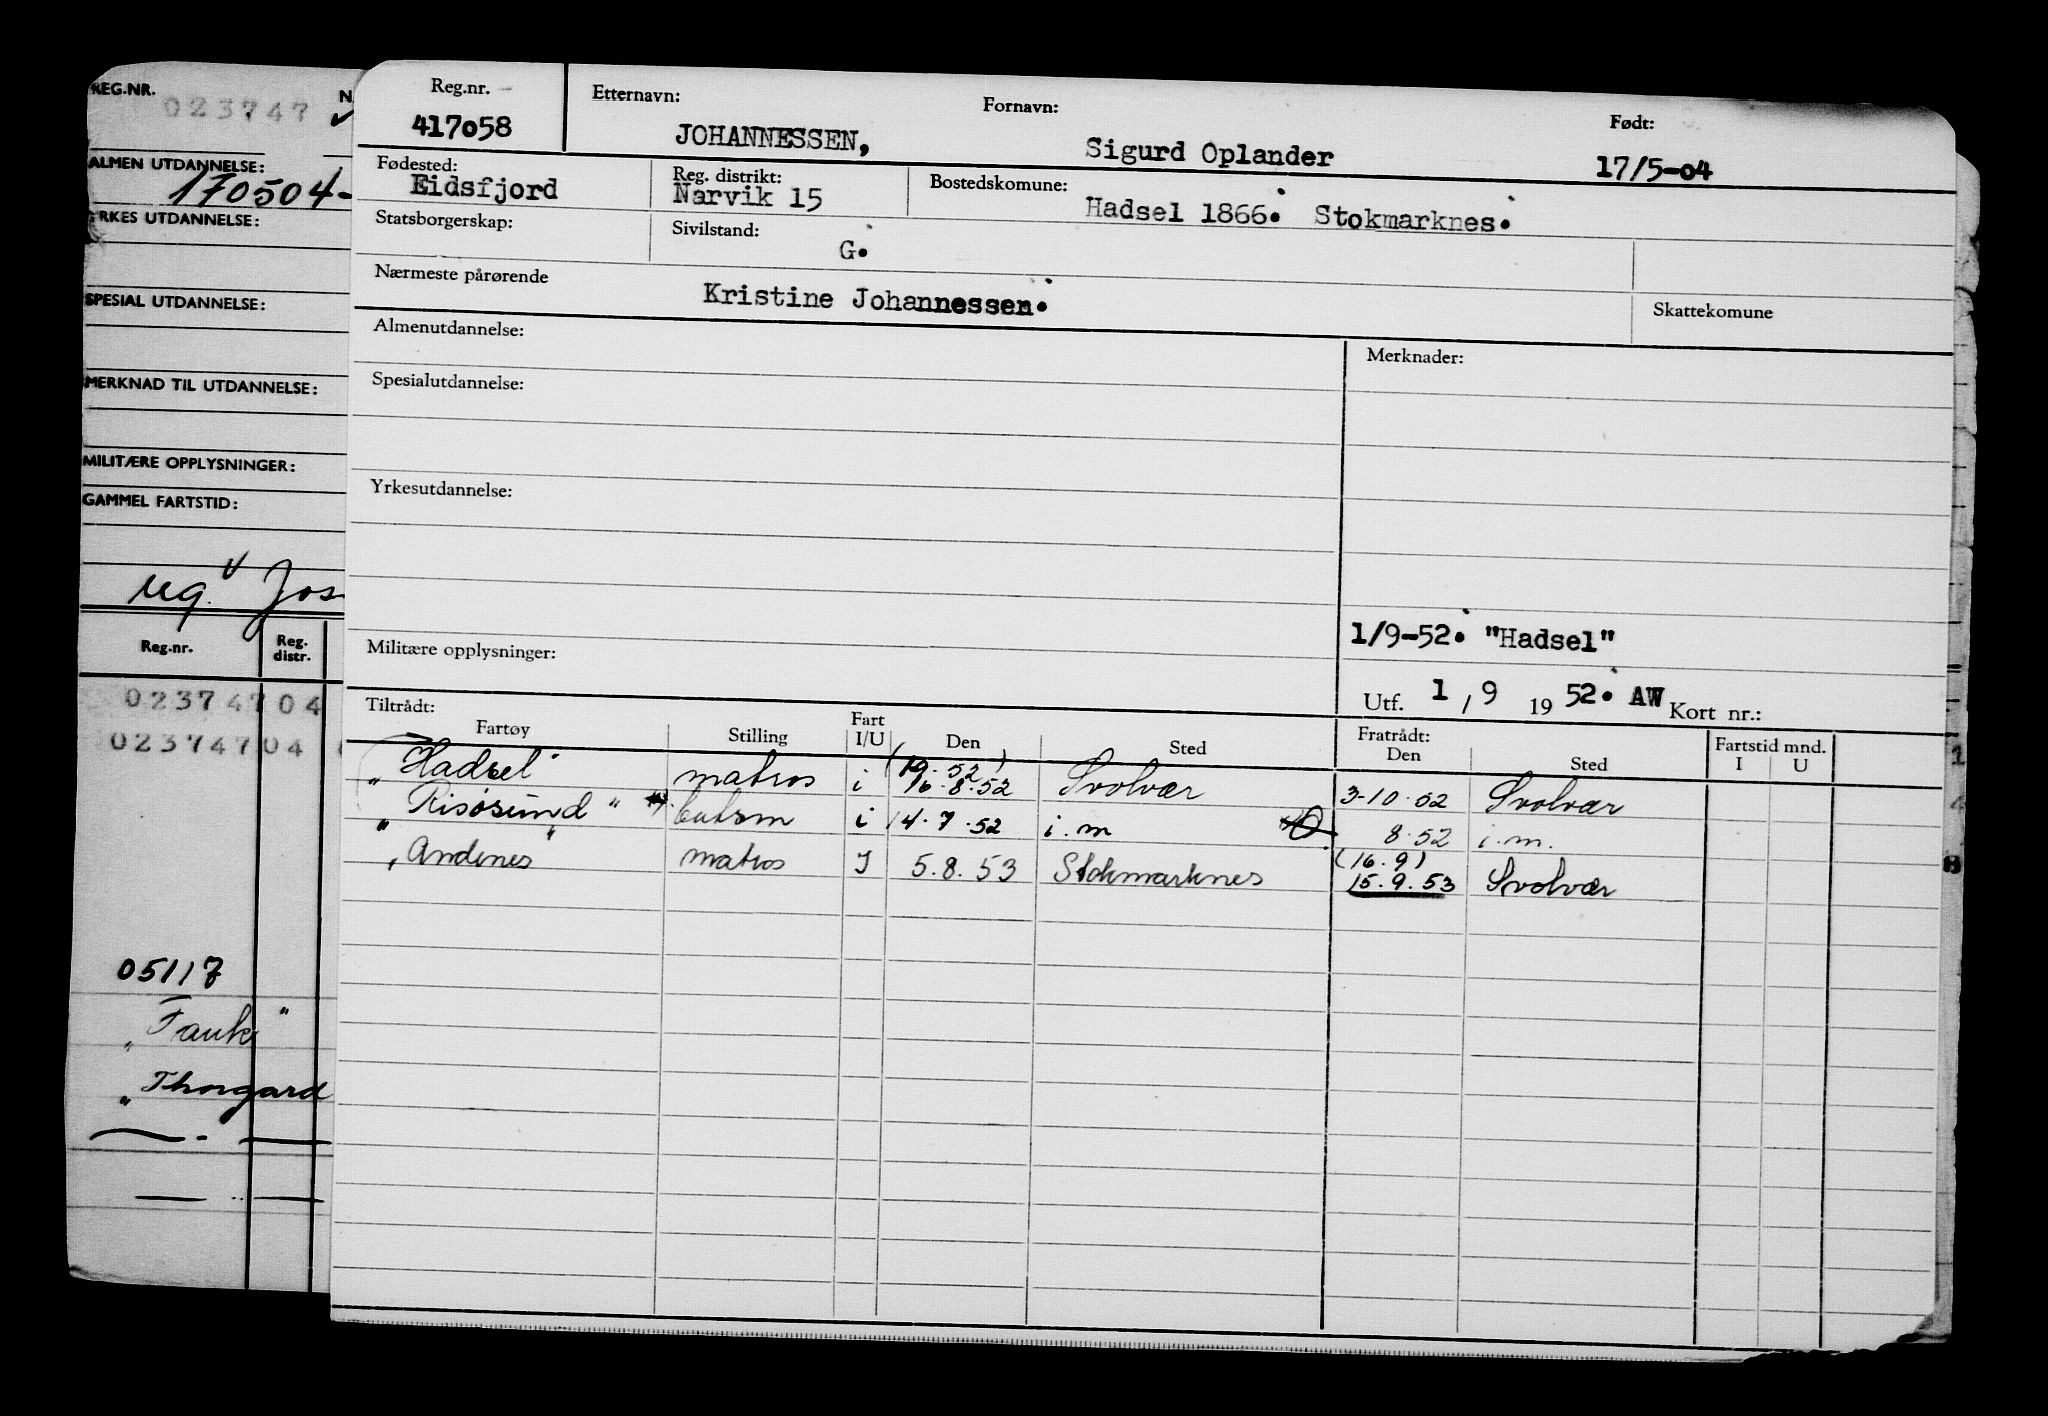 REG.NR. 023747
ALMEN UTDANNELSE:
170504-
YRKES UTDANNELSE:
SPESIAL UTDANNELSE:
MERKNAD TIL UTDANNELSE:
MILITÆRE OPPLYSNINGER:
GAMMEL FARTSTID:
Reg.nr. Reg. distr.
02374704
02374704
05117
"Thorgard
Reg.nr. Etternavn: Fornavn: Født:
417058 JOHANNESSEN, Sigurd Oplander 17/5-04
Fødested: Reg. distrikt: Bostedskomune:
Eidsfjord Narvik 15 Hadsel 1866. Stokmarknes.
Statsborgerskap: Sivilstand: G.
Nærmeste pårørende Kristine Johannessen. Skattekomune
Almenutdannelse: Merknader:
Spesialutdannelse:
Yrkesutdannelse:
1/9-52. "Hadsel"
Militære opplysninger:
Utf. 1 / 9 19 52. AW Kort nr.:
Tiltrådt: Fratrådt: Fartstid mnd.
Fartøy Stilling Fart I/U Den Sted Den Sted I U
"Hadsel" matros i 16.8.52 Svolvær 3-10.52 Svolvær
"Risøsund" i 14.7.52 i.m 8.52 i.m.
(16.9)
"Andenes" matros I 5.8.53 Stokmarknes 15.9.53 Svolvær